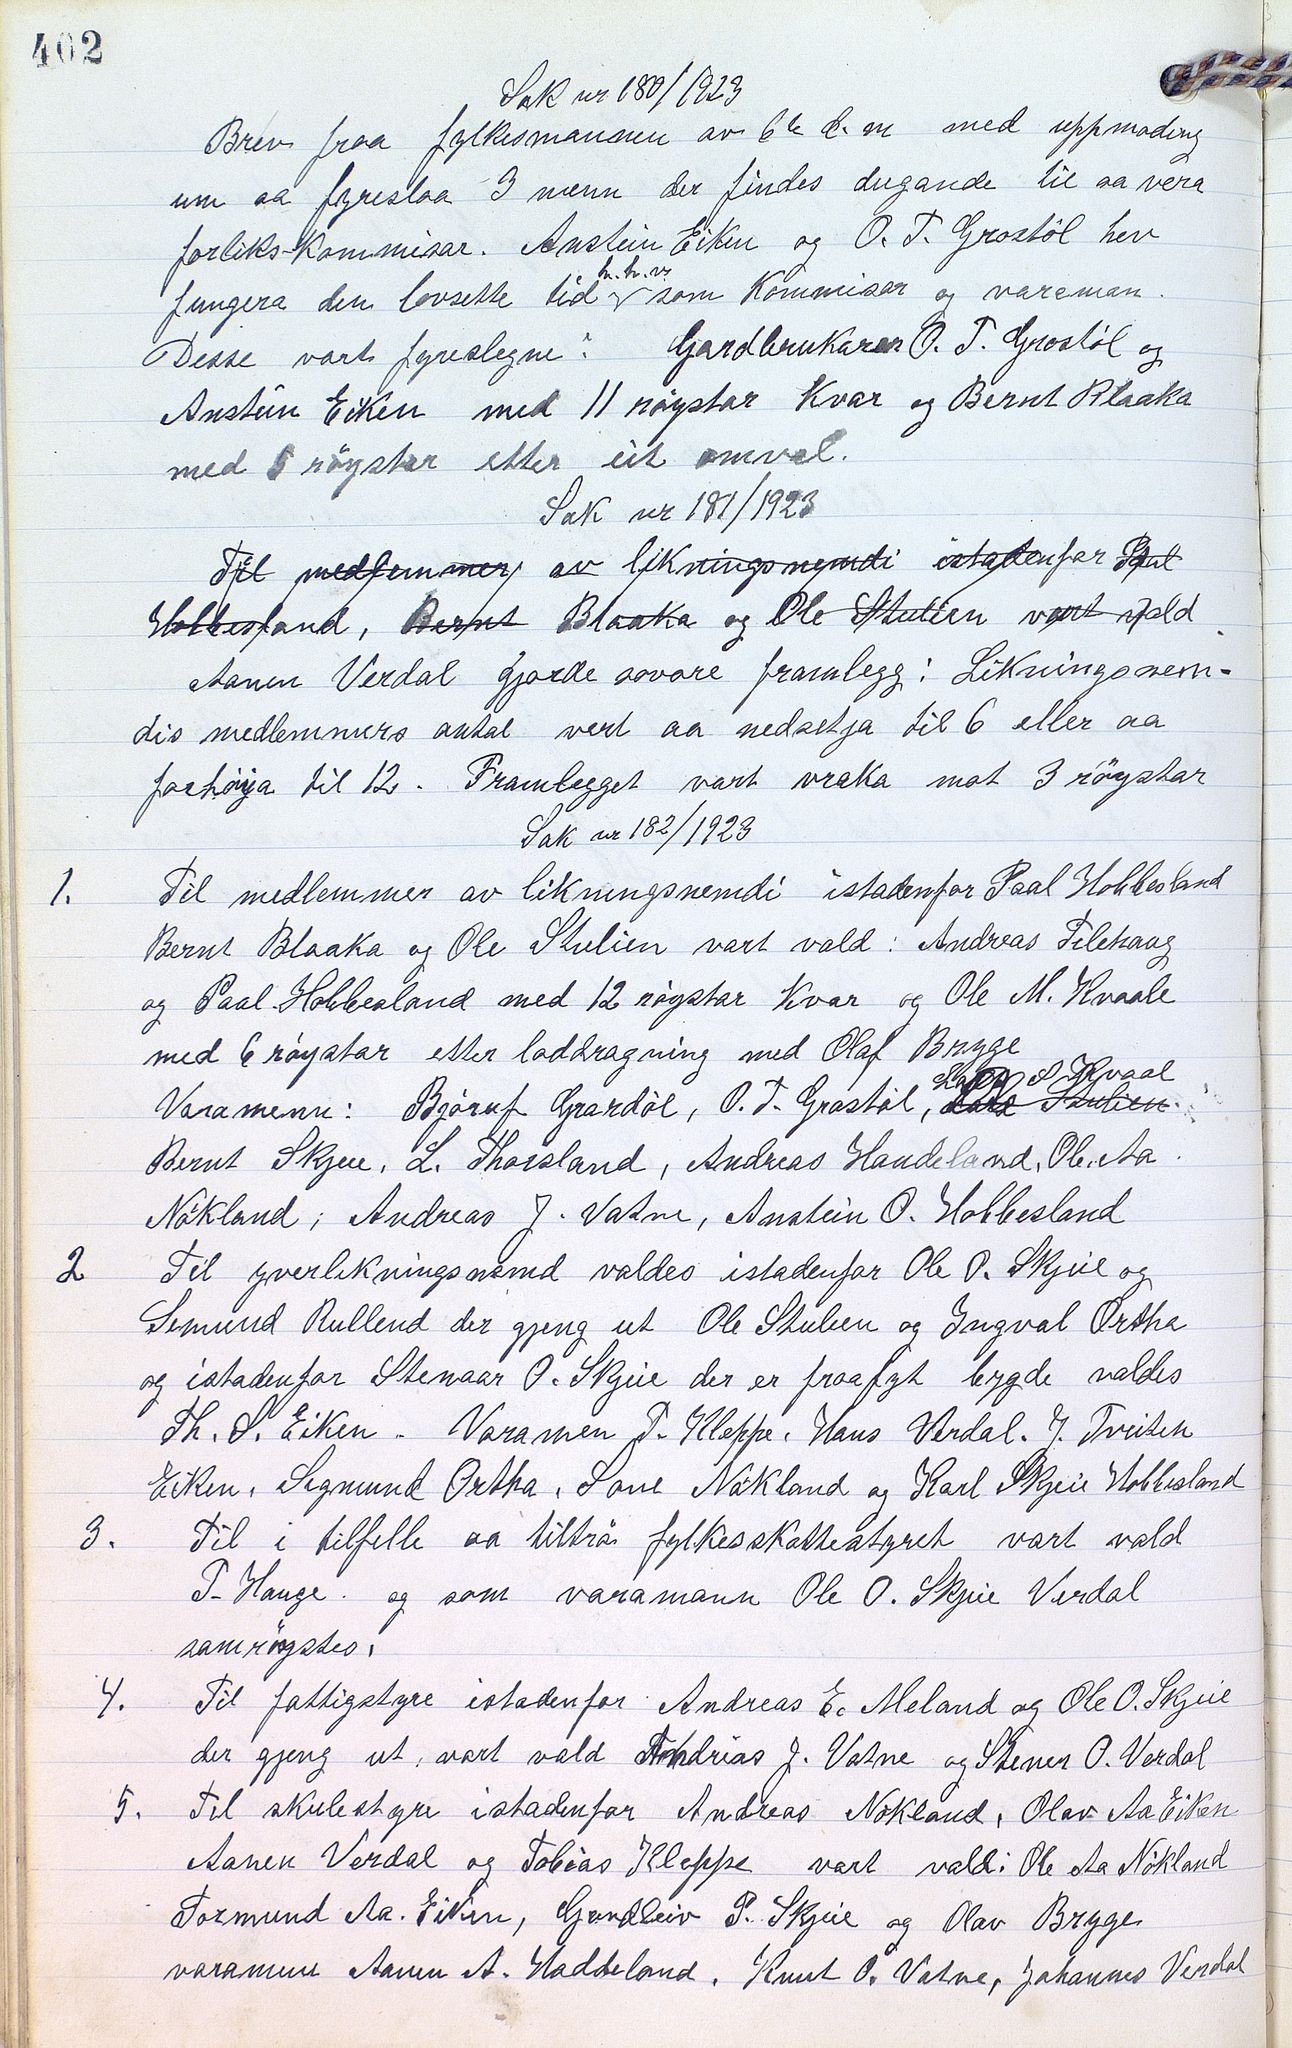 402
Sak nr 180/1923
Brev fraa fylkesmannen av 6te d.m med uppmoding
um aa fyreslaa 3 menn der findes dugande til aa vera
forliks-kommisar. Anstein Eiken og O. T. Grostöl hev
fungera den lovsette tid h.h.v. som kommisar og varaman.
Desse vart fyreslegne: Gardbrukarar O. T. Grostöl og
Anstein Eiken med 11 röystar kvar og Bernt Blaaka
med 5 röystar etter eit omval.
Sak nr 181/1923
Til medlemmer av likningsnemdi istadenfor Paul
Hobbesland, Bernt Blaaka og Ole Stulien vart vald
Aanen Verdal gjorde sovore framlegg: Likningsnem-
dis medlemmers antal vert aa nedsetja til 6 eller aa
forhöija til 12. Framlegget vart vraka mot 3 röystar
Sak nr 182/1923
1. Til medlemmer av likningsnemdi istadenfor Paal Hobbesland
Bernt Blaaka og Ole Stulien vart vald: Andreas Tilehaug
og Paal Hobbesland med 12 röystar kvar og Ole M. Kvaale
med 6 röystar etter loddragning med Olaf Brygge
Lars A Kvaal
Varamenn: Bjóruf Grardöl, O. T. Grostöl, Lars Stulien
Bernt Skjeie, L. Thorsland, Andreas Handeland, Ole Aa.
Nökland, Andreas J. Vatne, Anstein O. Hobbesland
2 Til yverlikningsnemd valdes istadenfor Ole O. Skjeie og
Semund Rullend der gjeng ut Ole Stulien og Ingval Ørtha
og istadenfor Stenaar O. Skjeie der er fraaflyt bygde valdes
Th. S. Eiken. Varamen T. Kleppe, Hans Verdal. J. Tveiten
Eiken, Sigmund Ortha, Lone Nökland og Karl Skjeie Hobbesland
3. Til i tilfelle aa tilträ fylkesskattestyret vart vald
T. Hauge. og som varamann Ole O. Skjeie Verdal
samröystes.
4. Til fattigstyre istadenfor Andreas E. Meland og Ole O. Skjeie
der gjeng ut, vart vald Andreas J. Vatne og Stener O. Verdal
5. Til skulestyre istadenfor Andreas Nökland, Olav Aa Eiken
Aanen Verdal og Tobias Kleppe vart vald: Ole Aa Nökland
Tormund Aa. Eiken, Gundleiv P. Skjeie og Olav Brygge
varamenn Aanen A. Haddeland, Knut O. Vatne, Johannes Verdal